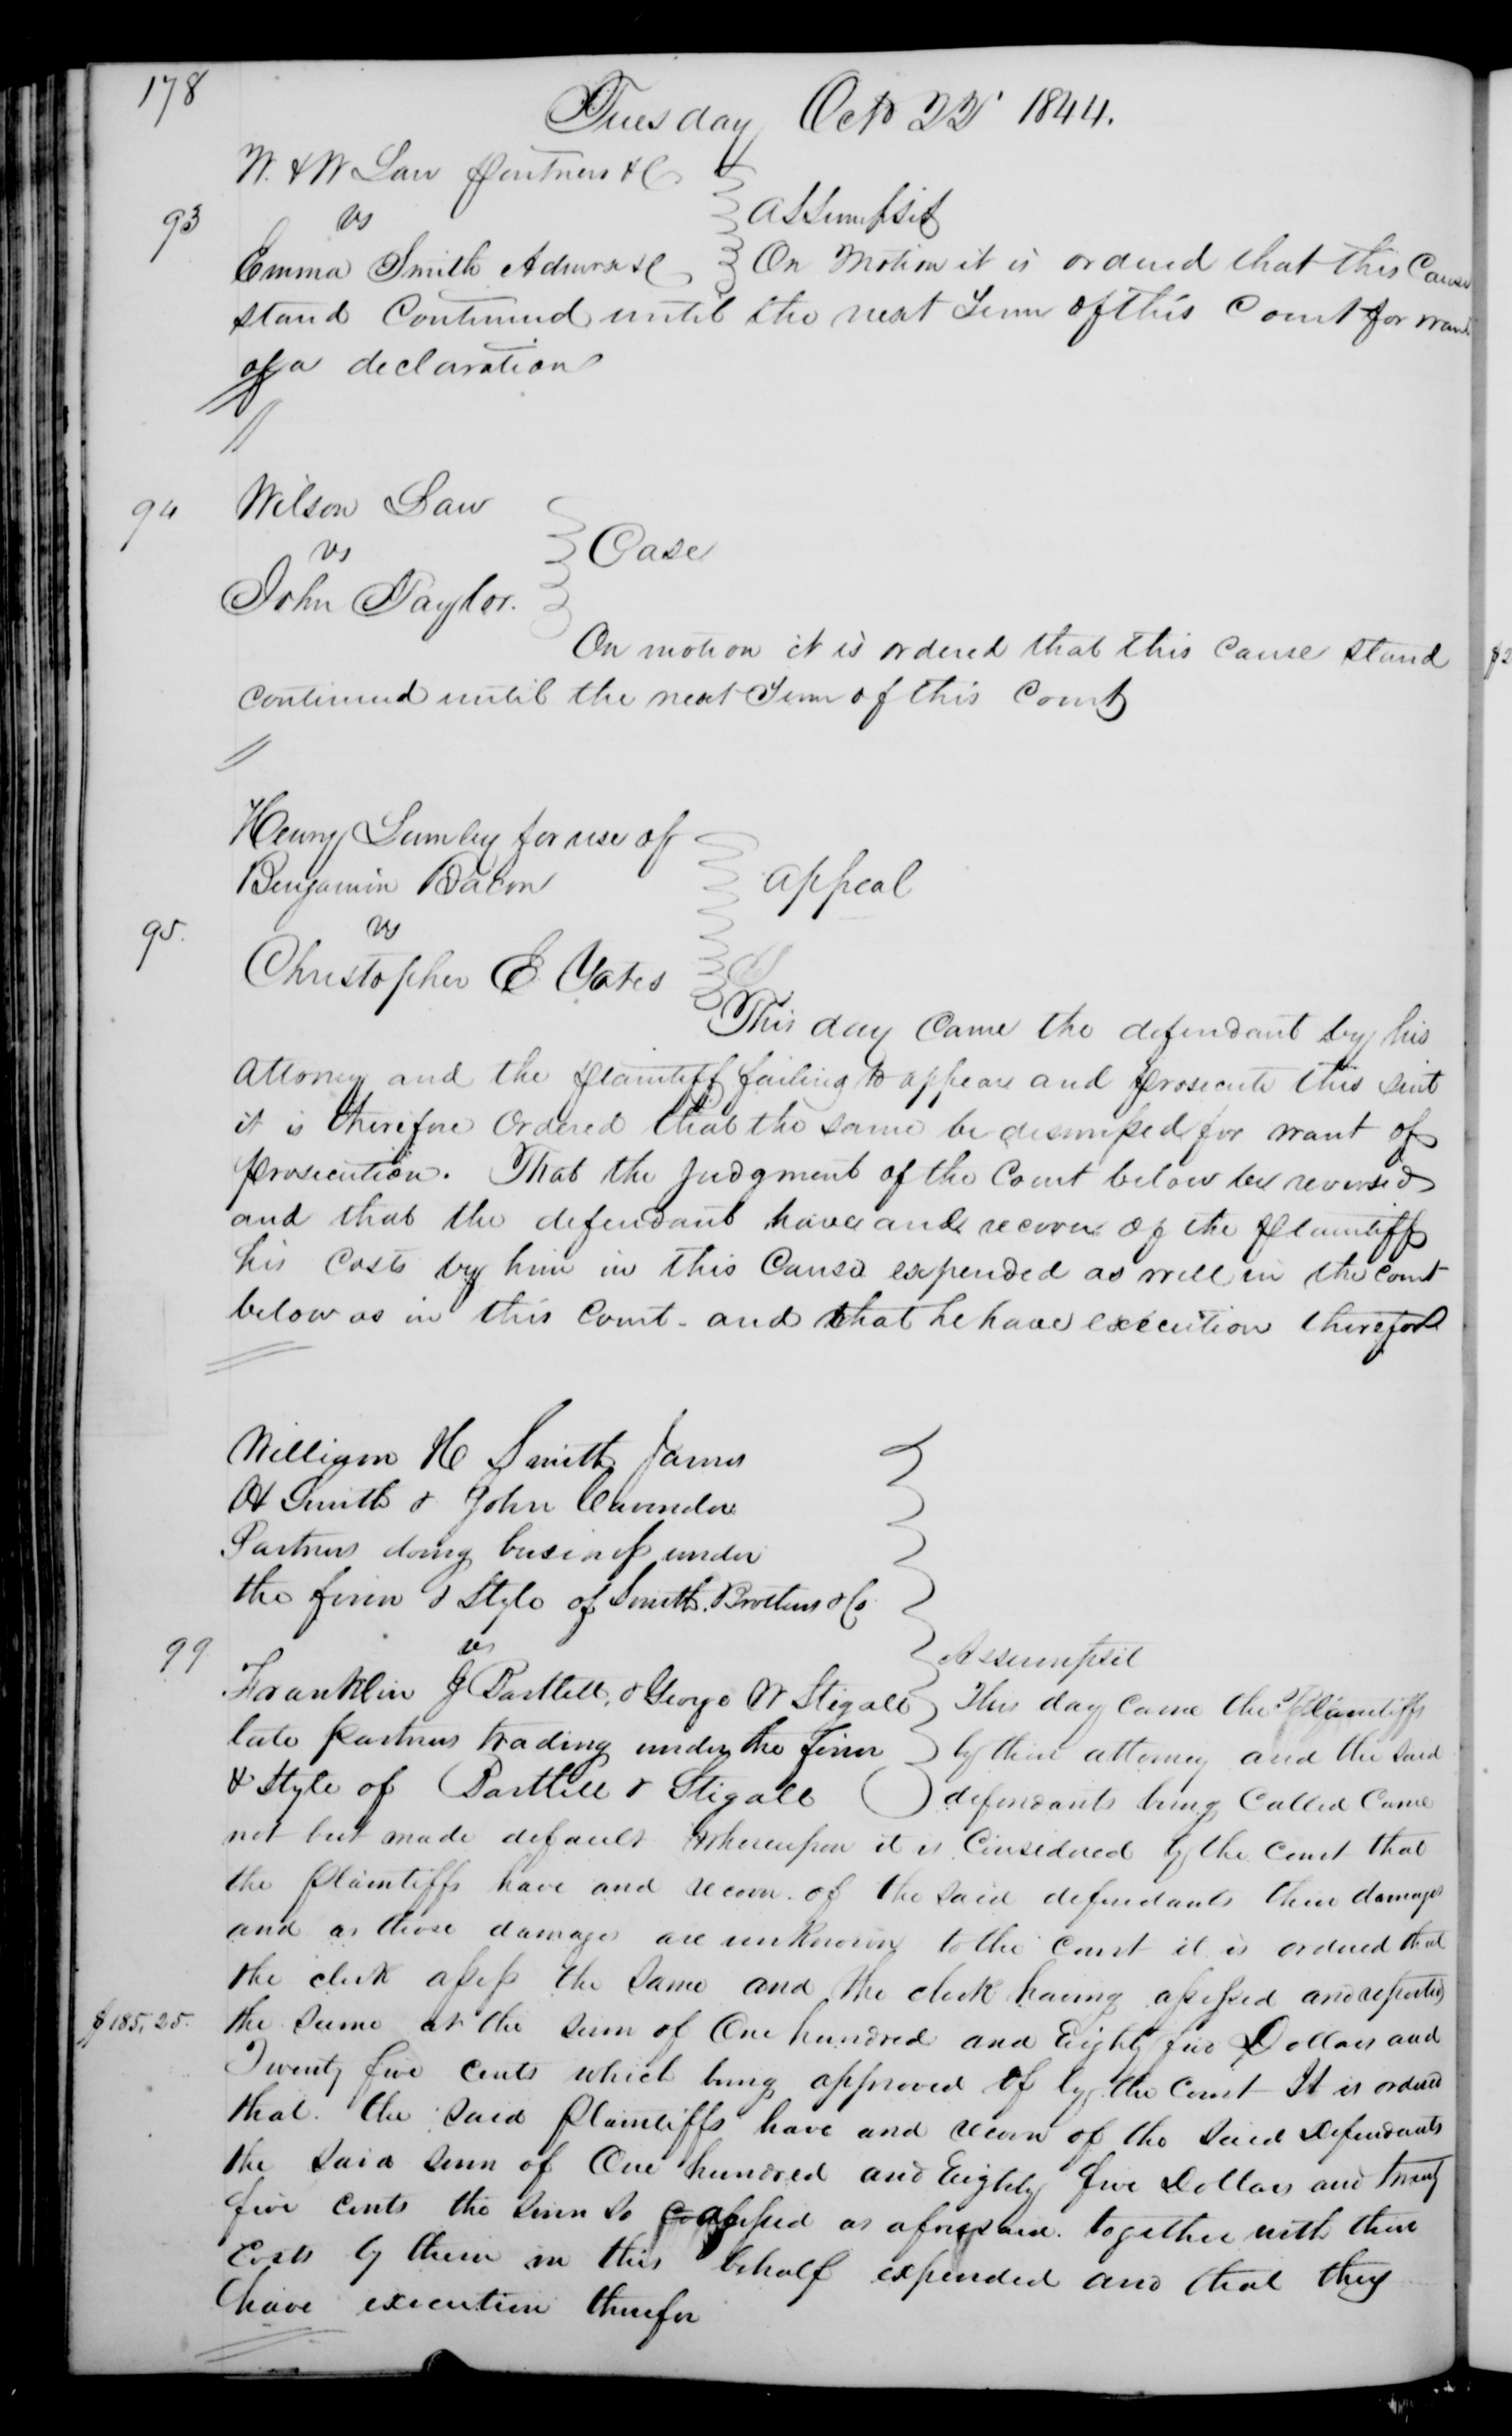 178
Tuesday Oct 22d 1844.
W. & W Law Partners &C
93 vs Assumpsit
Emma Smith Admrx &C On Motion it is ordered that this Cause
stand Continued until the next Term of this Court for want
of a declaration
94 Wilson Law
vs Case
John Taylor.
On motion it is ordered that this cause stand
continued until the next Term of this Court
Henry Lumley for use of
Benjamin Bacon appeal
95. vs
Christopher E Yates
This day Came the defendant by his
Attorney and the plaintiff failing to appear and prosecute this suit
it is therefore Ordered that the same be dismissed for want of
prosecution. That the judgment of the Court below be reversed
and that the defendant have and recover of the plaintiff
his Costs by him in this Cause expended as well in the Court
below as in this Court - and that he have execution therefore
William H Smith James
H Smith & John Cavender
Partners doing business under
the firm & Style of Smith. Brothers & Co
99 vs Assumpsit
Franklin J Bartlett, & George W Stigall This day came the Plaintiffs
late partners trading under the firm by their attorney and the said
& Style of Bartlett & Stigall defendants being Called Came
not but made default whereupon it is Considered by the Court that
the plaintiffs have and recover of the said defendants their damages
and as those damages are unknown to the Court it is ordered that
the clerk assess the same and the clerk having assessed and reported
$185,25. the same at the sum of One hundred and Eighty five Dollars and
Twenty five cents which being approved of by the Court It is ordered
that the said plaintiffs have and recover of the said Defendants
the said sum of One hundred and Eighty five Dollars and twenty
five cents the sum so assessed as aforesaid. together with their
Costs by them in this behalf expended and that they
have execution therefor